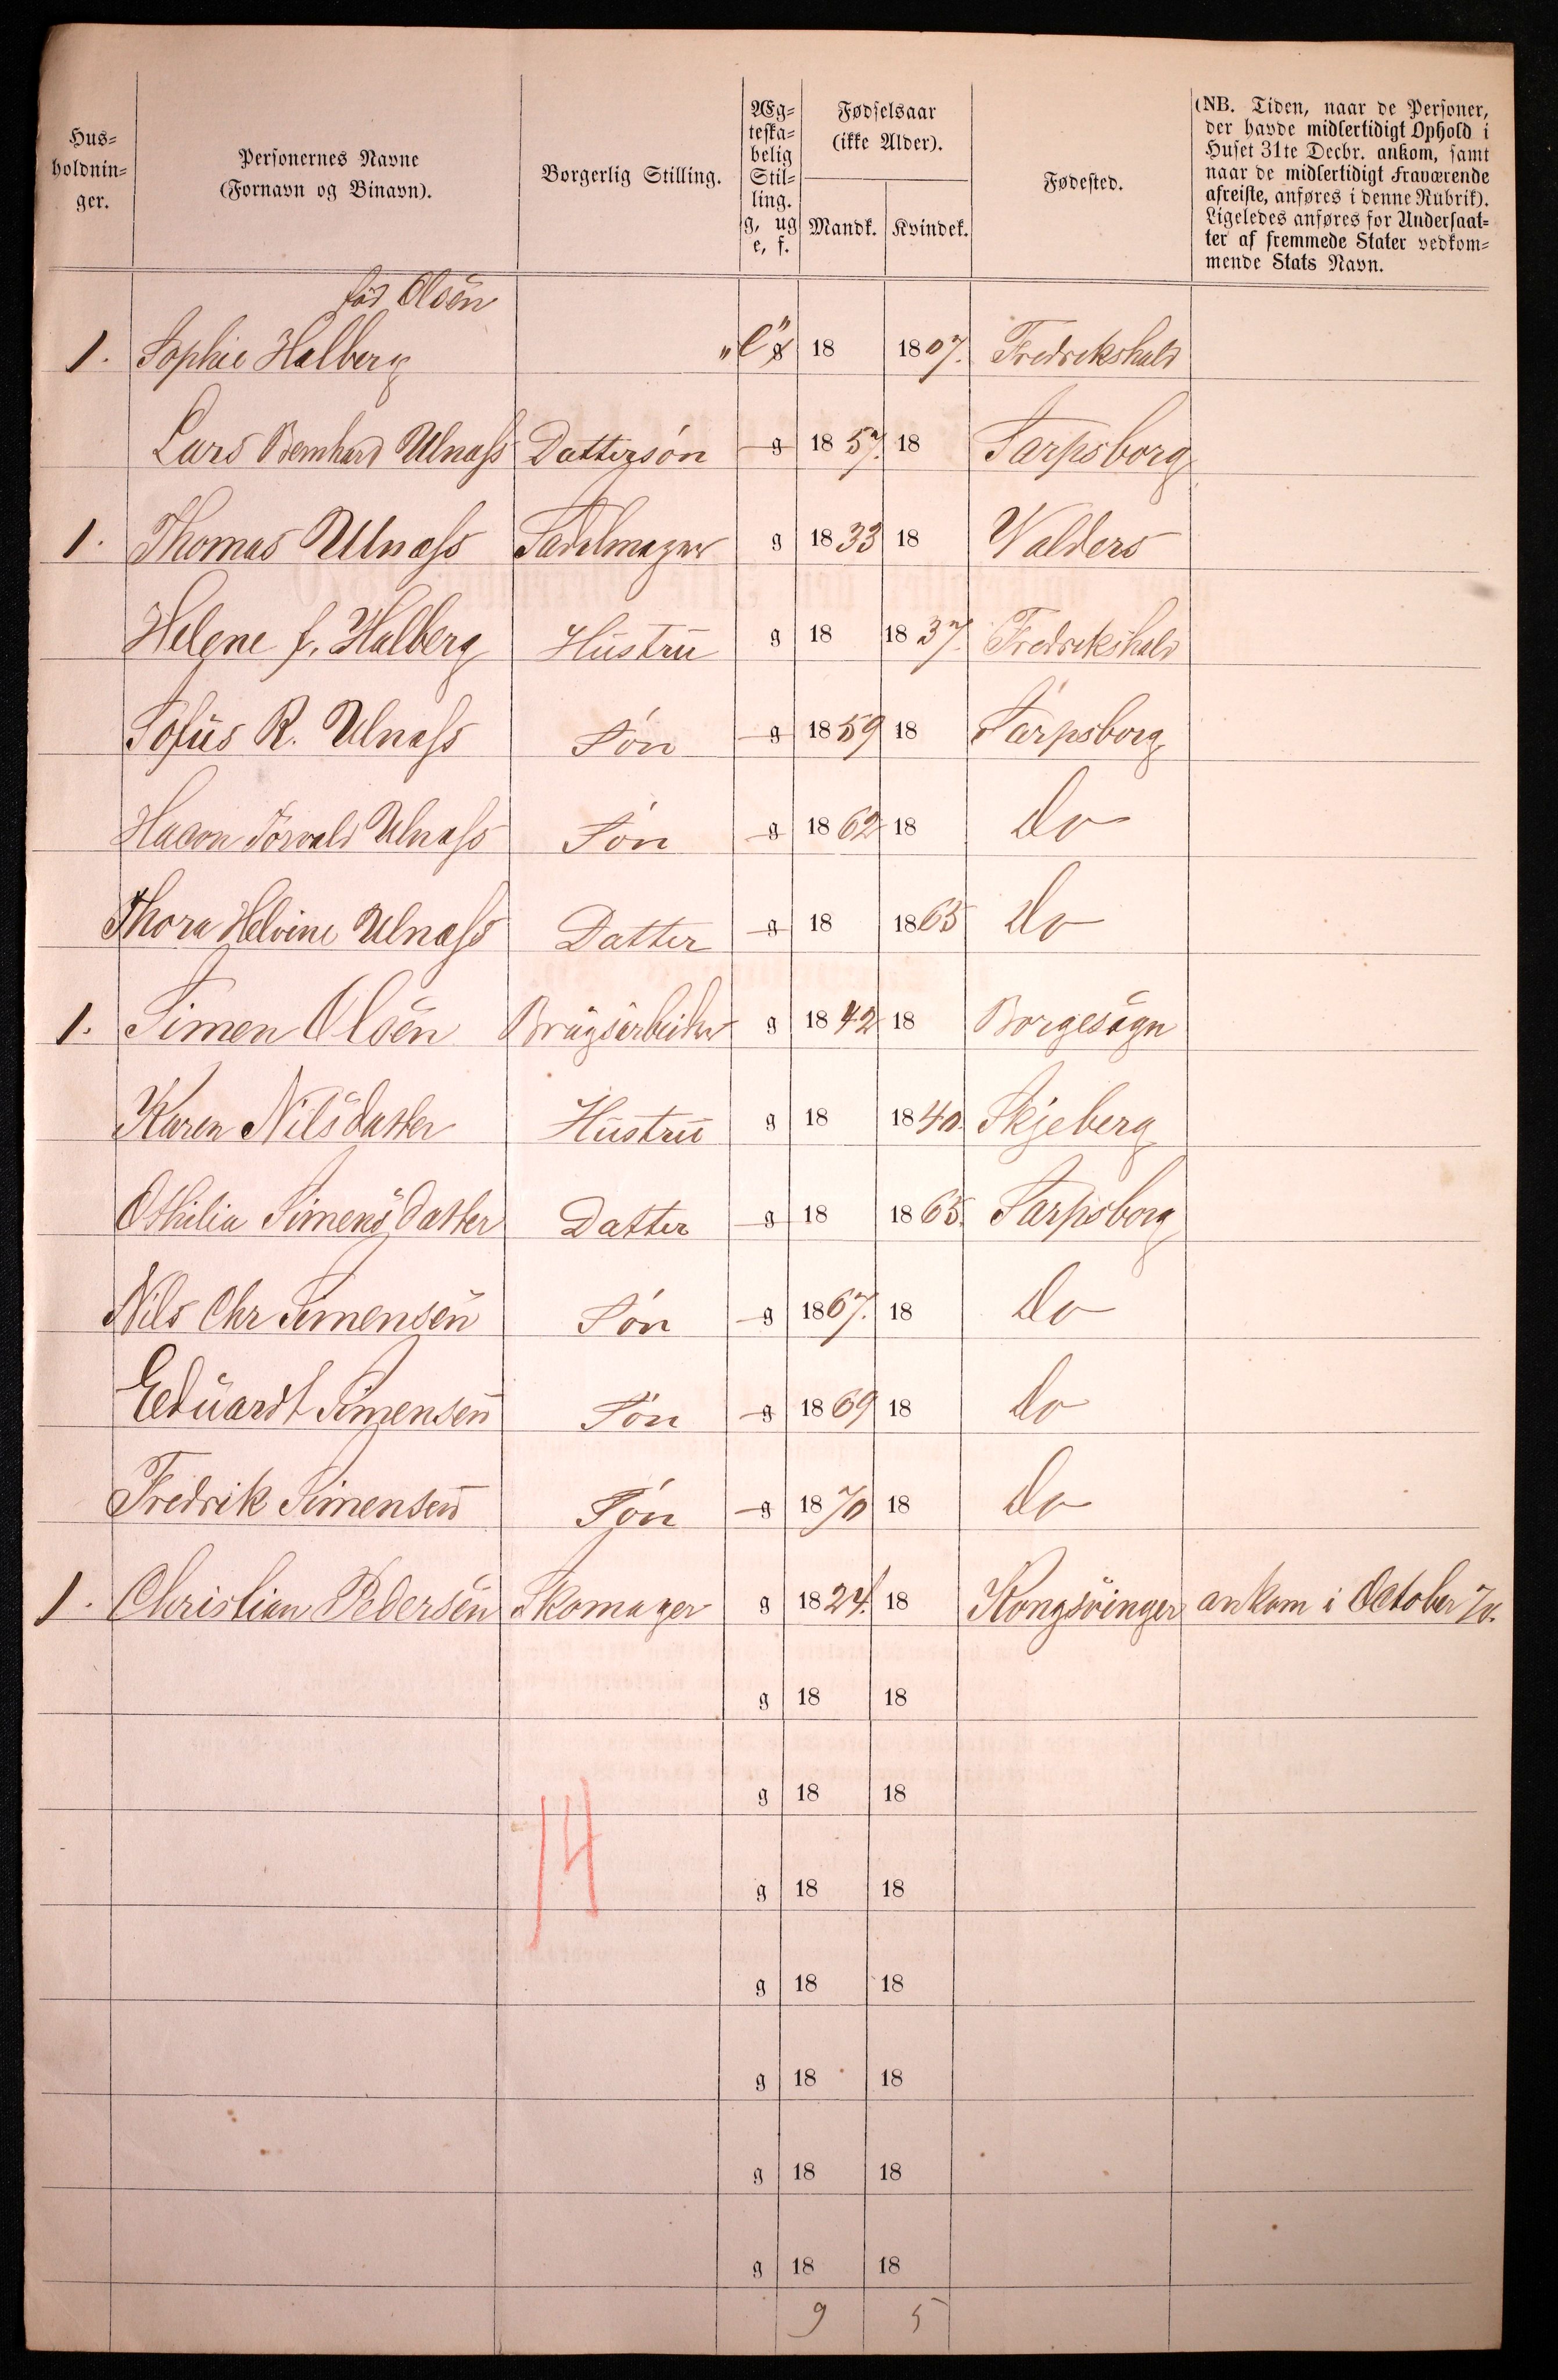 Hus-
holdnin-
ger.
Personernes Navne
(Fornavn og Binavn).
Borgerlig Stilling.
Æg-
teska-
belig
Stil-
ling.
g, ug
e, f.
Fødselsaar
(ikke Alder).
Mandk. Kvindek.
Fødested.
(NB. Tiden, naar de Personer,
der havde midlertidigt Ophold i
Huset 31te Decbr. ankom, samt
naar de midlertidigt Fraværende
afreiste, anføres i denne Rubrik).
Ligeledes anføres for Undersaat-
ter af fremmede Stater vedkom-
mende Stats Navn.
fød Olsen
1. Sophie Halberg "e" g 18 1807. Fredrekshald
Lars Bernhard Ulnass Dattersón g 1857. 18 Sarpsborg
1. Thomas Ulnass Sadelmager g 1833 18 Walders
Helene f. Halberg Hustru g 18 1837. Fredrekshald
Sofus R. Ulnass Són g 1859 18 Sarpsborg
Hacon Torvald Ulnass Són g 1862 18 Do
Thora Helvine Ulnass Datter g 18 1865 Do
1. Simen Olsen Brugsarbeider g 1842 18 Borgesogn
Karen Nilsdatter Hustru g 18 1840. Skjeberg
Othilia Simensdatter Datter g 18 1865. Sarpsborg
Nils Chr Simensen Són g 1867. 18 Do
Eduardt Simensen Són g 1869 18 Do
Fredrik Simensen Són g 1870 18 Do
1. Christian Pedersen Skomager g 1824. 18 Kongsvinger ankom i October 70.
g 18 18
g 18 18
14
g 18 18
g 18 18
g 18 18
g 18 18
g 18 18
9 5